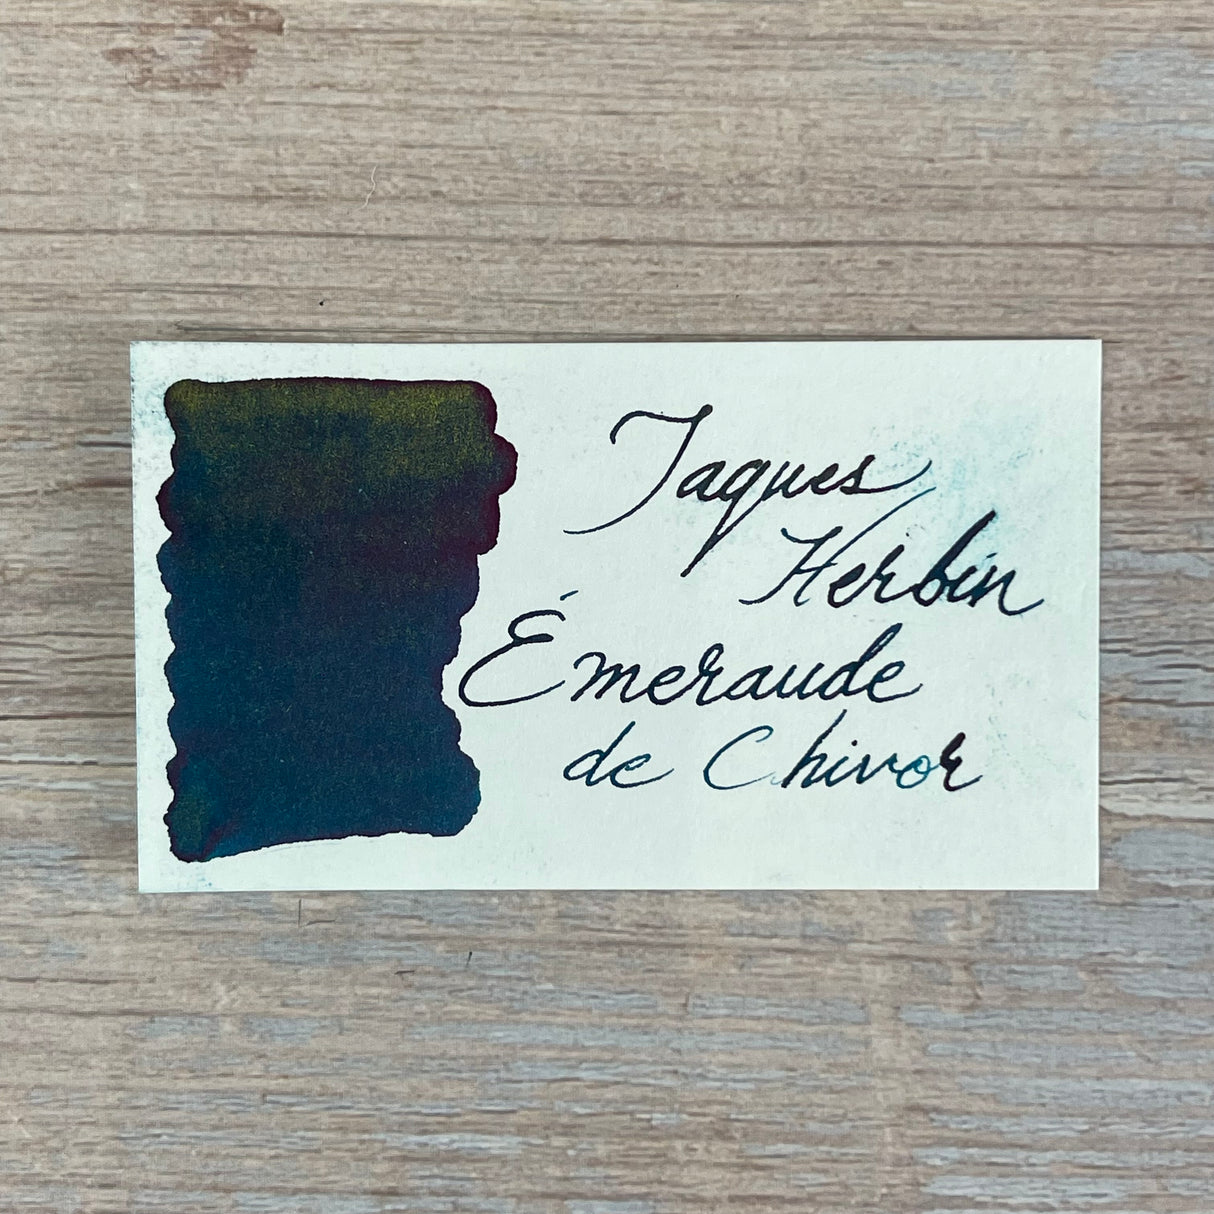 Jaques
Herbin
Émeraude
de Chivor